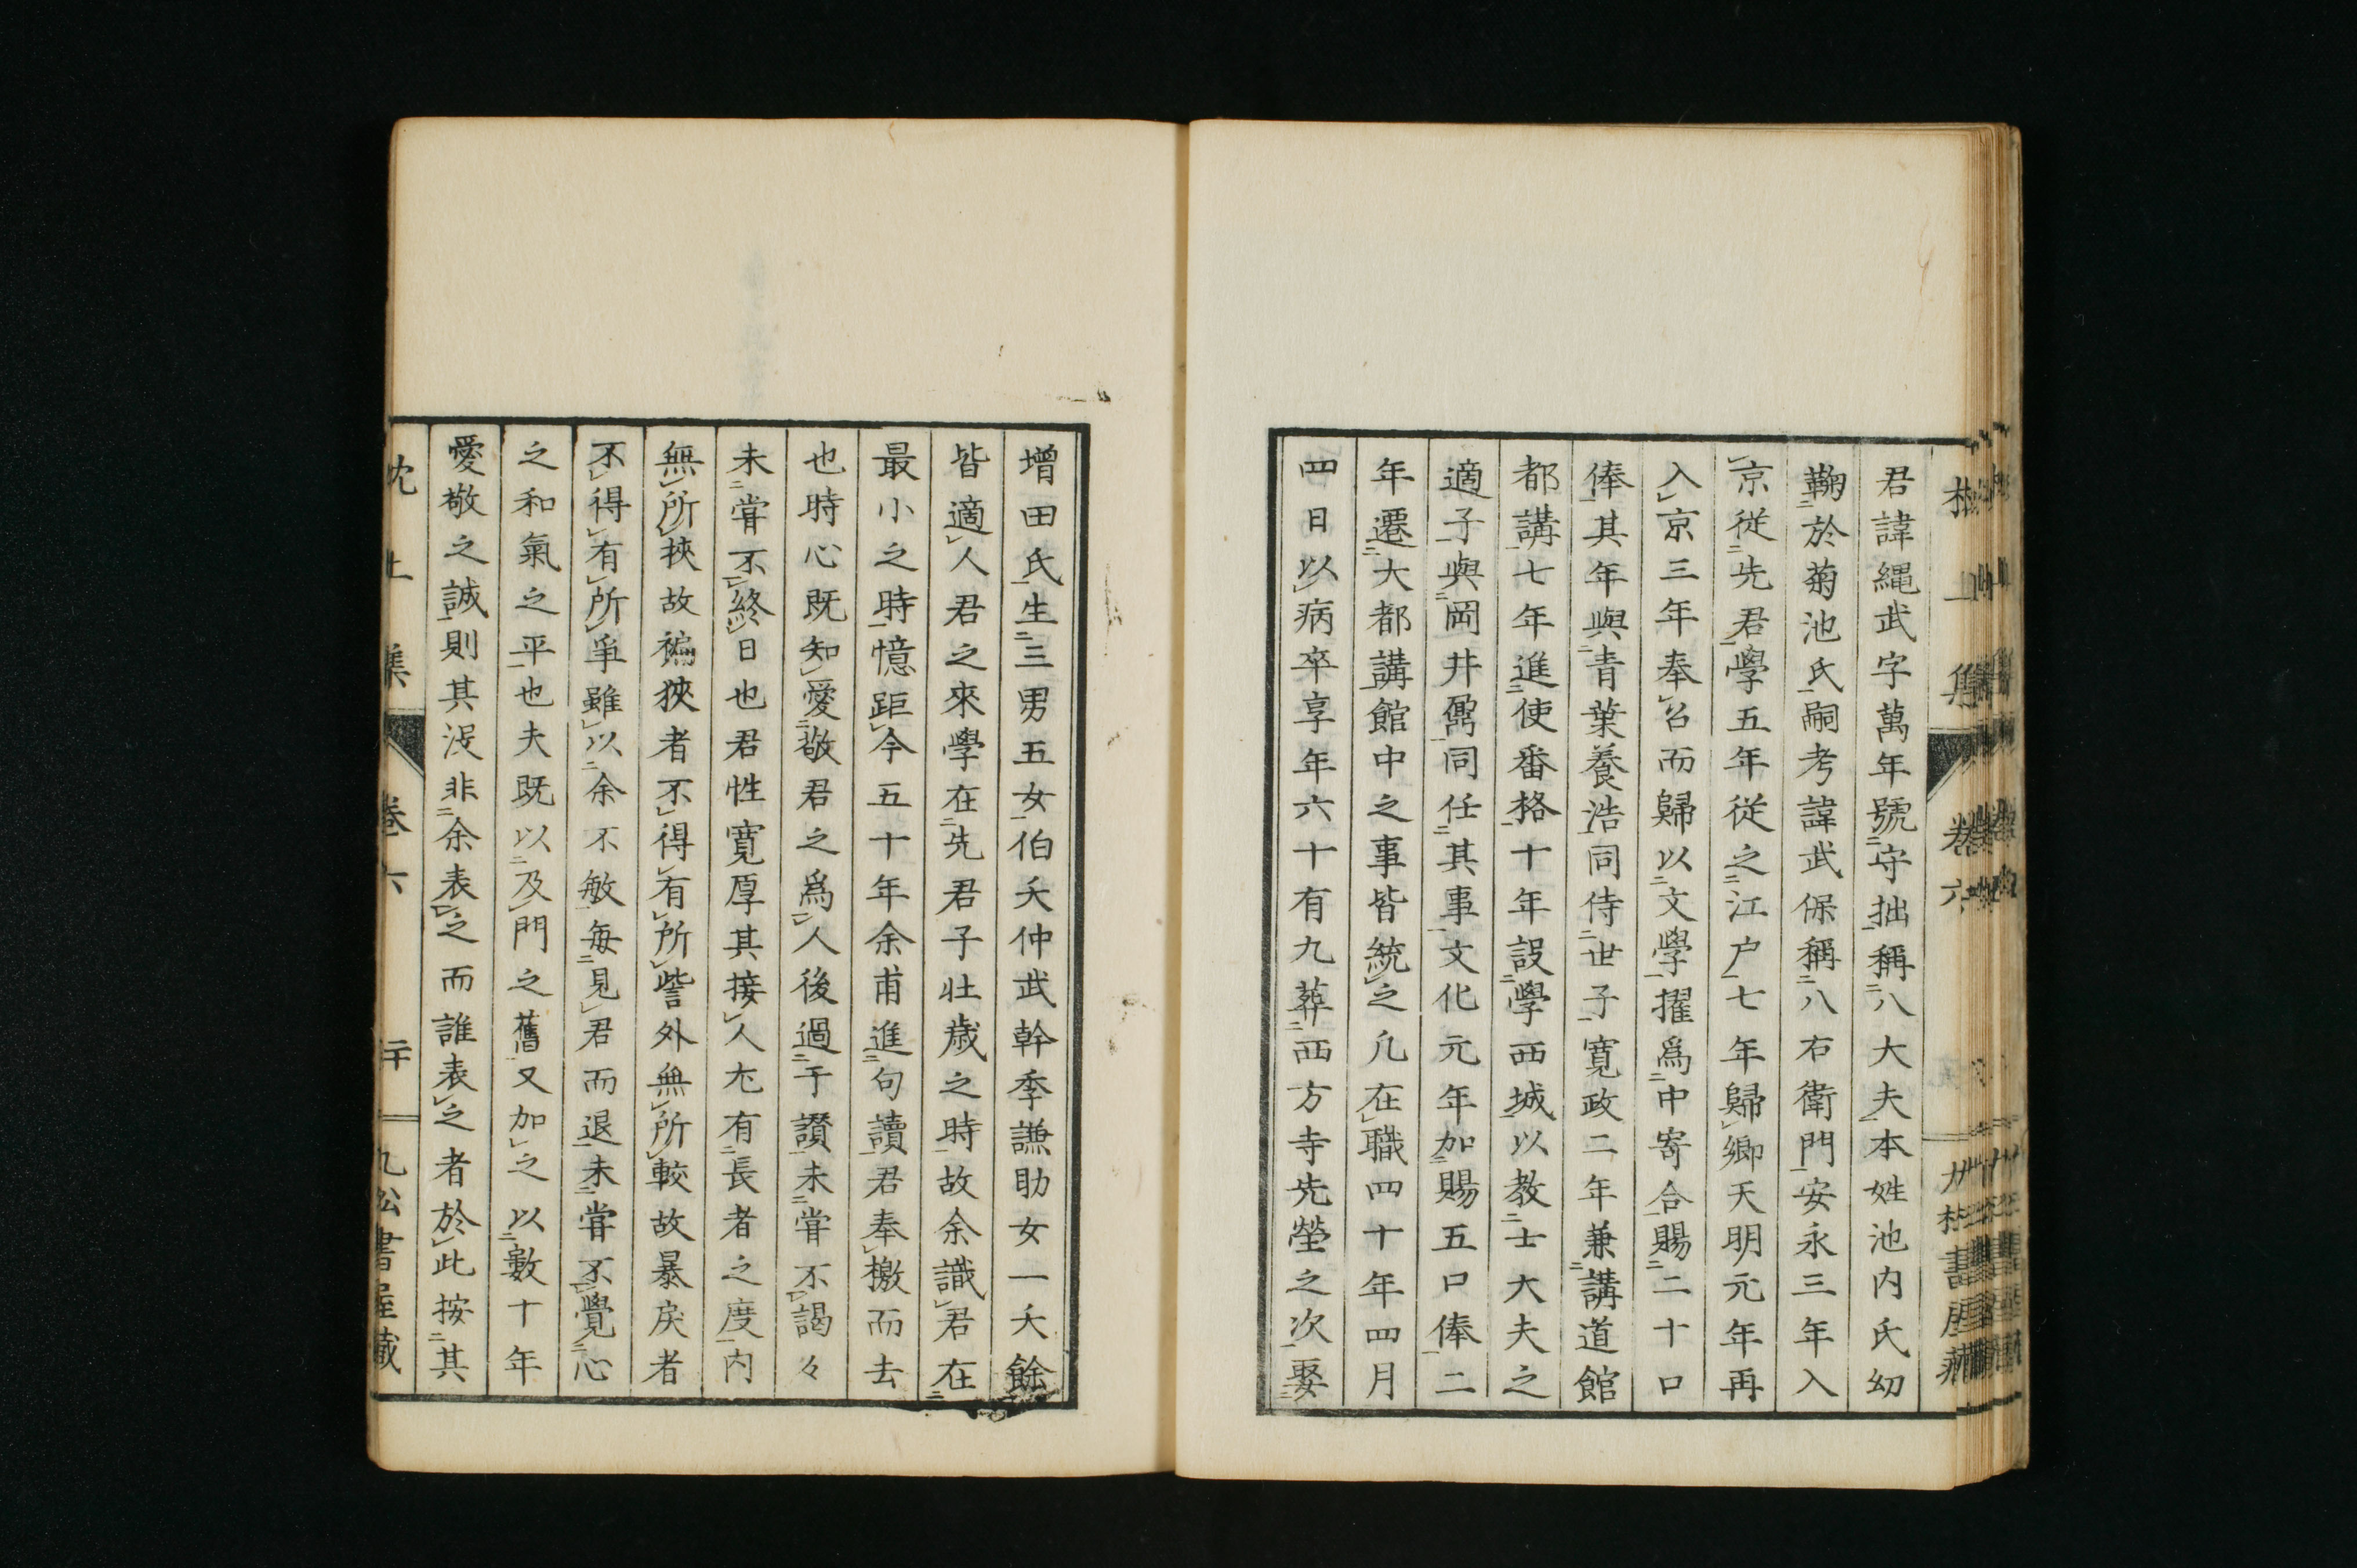 君諱縄武字萬年號守拙稱八大夫本姓池内氏幼
鞠於菊池氏嗣考諱武保稱八右衛門安永三年入
京従先君學五年従之江户七年歸郷天明元年再
入京三年奉召而歸以文學擢爲中寄合賜二十口
俸其年與青葉養浩同侍世子寛政二年兼講道館
都講七年進使番格十年設學西城以教士大夫之
適子與岡井鼐同任其事文化元年加賜五口俸二
年遷大都講館中之事皆統之凡在職四十年四月
四日以病卒享年六十有九葬西方寺先塋之次娶
増田氏生三男五女伯夭仲武幹季謙助女一夭餘
皆適人君之來學在先君子壮歳之時故余識君在
最小之時憶距今五十年余甫進句讀君奉檄而去
也時心既知愛敬君之爲人後過于讃未甞不謁々
未甞不終日也君性寛厚其接人尤有長者之度内
無所挾故褊狹者不得有所訾外無所較故暴戾者
不得有所爭雖以余不敏毎見君而退未甞不覺心
之和氣之平也夫既以及門之舊又加之以數十年
愛敬之誠則其没非余表之而誰表之者於此按其
枕上集 卷六 二十 九松書屋藏